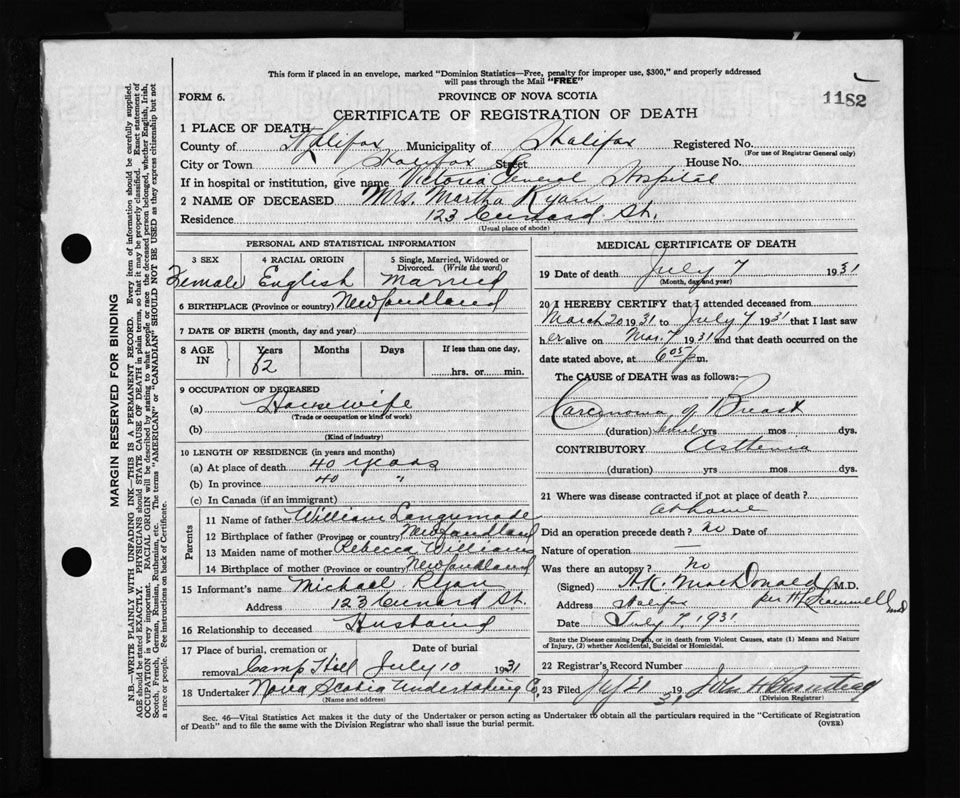 This form if placed in an envelope, marked "Dominion Statistics—Free, penalty for improper use, $300," and properly addressed
will pass through the Mail "FREE"
1182
FORM 6.
PROVINCE OF NOVA SCOTIA
CERTIFICATE OF REGISTRATION OF DEATH
1 PLACE OF DEATH
County of Halifax Municipality of Halifax Registered No.
(For use of Registrar General only)
City or Town Halifax Street House No.
If in hospital or institution, give name Victoria General Hospital
2 NAME OF DECEASED Mrs. Martha Ryan
Residence 123 Cunard St.
(Usual place of abode)
PERSONAL AND STATISTICAL INFORMATION
3 SEX 4 RACIAL ORIGIN 5 Single, Married, Widowed or
Divorced. (Write the word)
Female English Married
6 BIRTHPLACE (Province or country) Newfoundland
7 DATE OF BIRTH (month, day and year)
8 AGE IN Years Months Days If less than one day,
62 hrs. or min.
9 OCCUPATION OF DECEASED
(a) Housewife
(Trade or occupation or kind of work)
(b)
(Kind of industry)
10 LENGTH OF RESIDENCE (in years and months)
(a) At place of death 40 years
(b) In province 40 "
(c) In Canada (if an immigrant)
Parents
11 Name of father William
12 Birthplace of father (Province or country) Newfoundland
13 Maiden name of mother Rebecca Williams
14 Birthplace of mother (Province or country) Newfoundland
15 Informant's name Michael Ryan
Address 123 Cunard St.
16 Relationship to deceased Husband
17 Place of burial, cremation or Date of burial
removal Camp Hill July 10 1931
18 Undertaker Nova Scotia Undertaking Co,
(Name and address)
MEDICAL CERTIFICATE OF DEATH
19 Date of death July 7 1931
(Month, day and year)
20 I HEREBY CERTIFY that I attended deceased from
March 20 1931 to July 7 1931 that I last saw
her alive on Mar. 7 1931 and that death occurred on the
date stated above, at 6 05 p m.
The CAUSE OF DEATH was as follows:
Carcinoma of Breast
(duration) yrs mos dys.
CONTRIBUTORY Asthenia
(duration) yrs mos dys.
21 Where was disease contracted if not at place of death?
at home
Did an operation precede death? no Date of
Nature of operation —
Was there an autopsy? No
(Signed) H.K. MacDonald M.D.
Address Halifax per
Date July 7 1931
State the Disease causing Death, or in death from Violent Causes, state (1) Means and Nature
of Injury, (2) whether Accidental, Suicidal or Homicidal.
22 Registrar's Record Number
23 Filed 19 31 John
(Division Registrar)
Sec. 46—Vital Statistics Act makes it the duty of the Undertaker or person acting as Undertaker to obtain all the particulars required in the "Certificate of Registration
of Death" and to file the same with the Division Registrar who shall issue the burial permit.
(OVER)
MARGIN RESERVED FOR BINDING
N.B.—WRITE PLAINLY WITH UNFADING INK—THIS IS A PERMANENT RECORD. Every item of information should be carefully supplied.
AGE should be stated EXACTLY. PHYSICIANS should STATE CAUSE OF DEATH in plain terms, so that it may be properly classified. Exact statement of
OCCUPATION is very important. RACIAL ORIGIN will be described by stating to what people or race the deceased person belonged, whether English, Irish,
Scotch, French, German, Russian, Ruthenian, etc. The terms "AMERICAN" or "CANADIAN" SHOULD NOT BE USED as they express citizenship but not
a race or people. See instructions on back of Certificate.